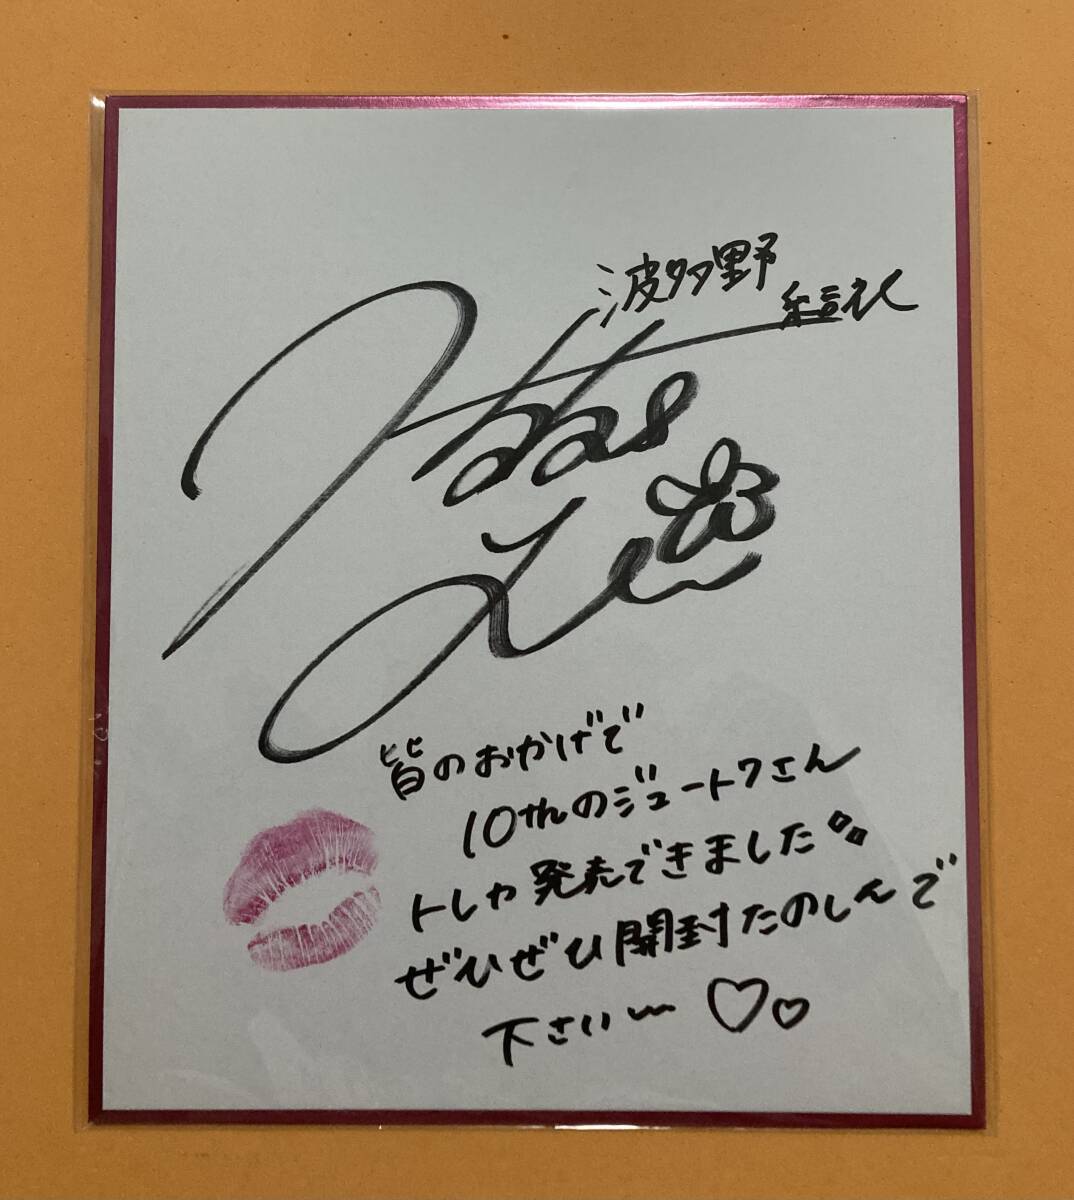 波多野
結衣
皆のおかげで
10thのジュートクさん
トレカ発売できました
ぜひぜひ開封たのしんで
下さい〜♡♡